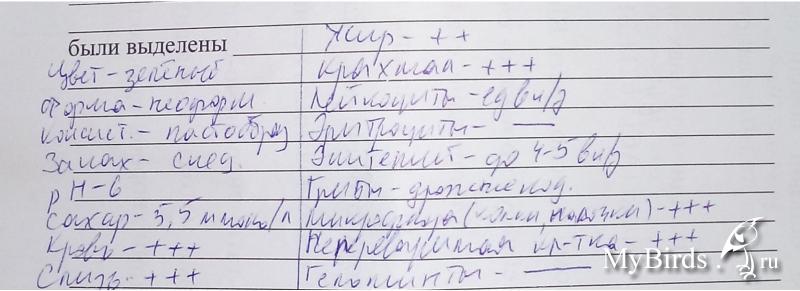 были выделены
Цвет - зелёный
Форма - неоформ.
Консист. - пастообраз
Запах - спец.
pH - 6
Сахар - 5,5 ммоль/л
Кровь - +++
Слизь - +++
Жир - ++
Крахмал - +++
Лейкоциты - ед в п/з
Эритроциты - —
Эпителий - до 4-5 в п/з
Грибы - дрожжепод.
Микрофлора (кокки, палочки) - +++
Неперевариваемая кл-тка - +++
Гельминты - —
MyBirds.ru